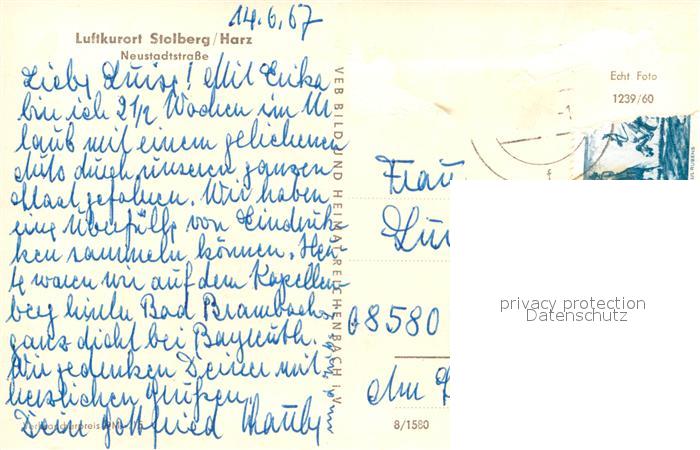 14.6.67
Luftkurort Stolberg/Harz
Neustadtstraße
Liebe Luise! Mit Erika
bin ich 2 1/2 Wochen im Ur
laub mit einem geliehenen
Auto durch unseren ganzen
Staat gefahren. Wir haben
eine Überfülle von Eindrük
ken sammeln können. Heu-
te waren wir auf dem Kapellen
berg hinter Bad Brambach
ganz dicht bei Bayreuth.
Wir gedenken Deiner mit
herzlichen Grüßen.
Dein Gottfried
VEB BILD UND HEIMAT REICHENBACH i. V.
Echt Foto
1239/60
Frau
08580
Am
8/1580
privacy protection
Datenschutz